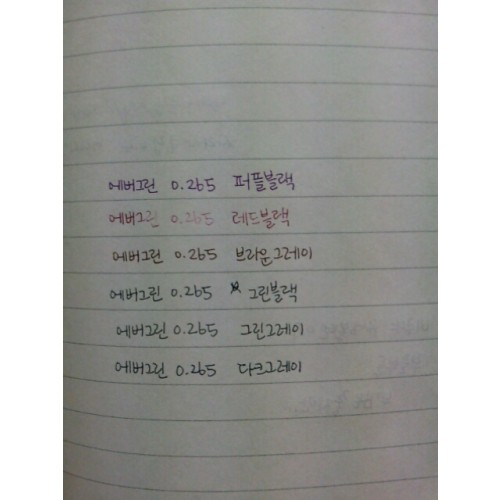 에버그린 0.265 퍼플블랙
에버그린 0.265 레드블랙
에버그린 0.265 브라운그레이
에버그린 0.265 그린블랙
에버그린 0.265 그린그레이
에버그린 0.265 다크그레이